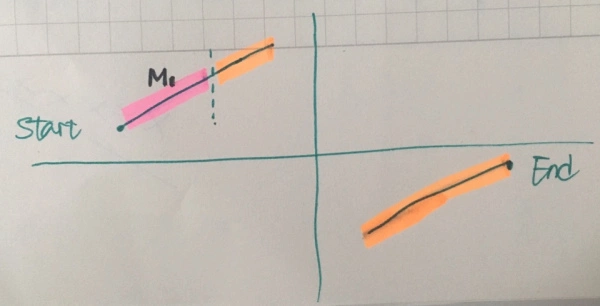 M₁
Start
End